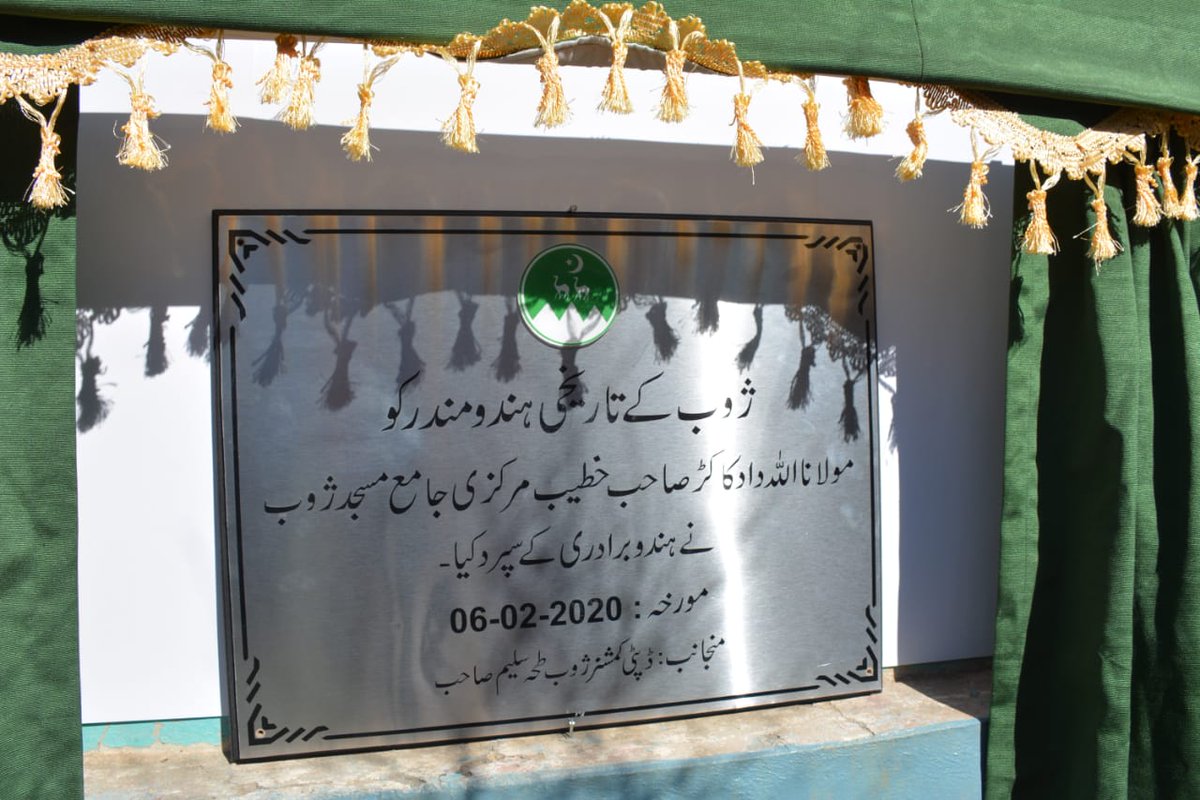 ژوب کے تاریخی ہندو مندر کو
مولانا اللہ داد کاکڑ صاحب خطیب مرکزی جامع مسجد ژوب
نے ہندو برادری کے سپرد کیا۔
مورخہ : 06-02-2020
منجانب : ڈپٹی کمشنر ژوب طحہ سلیم صاحب